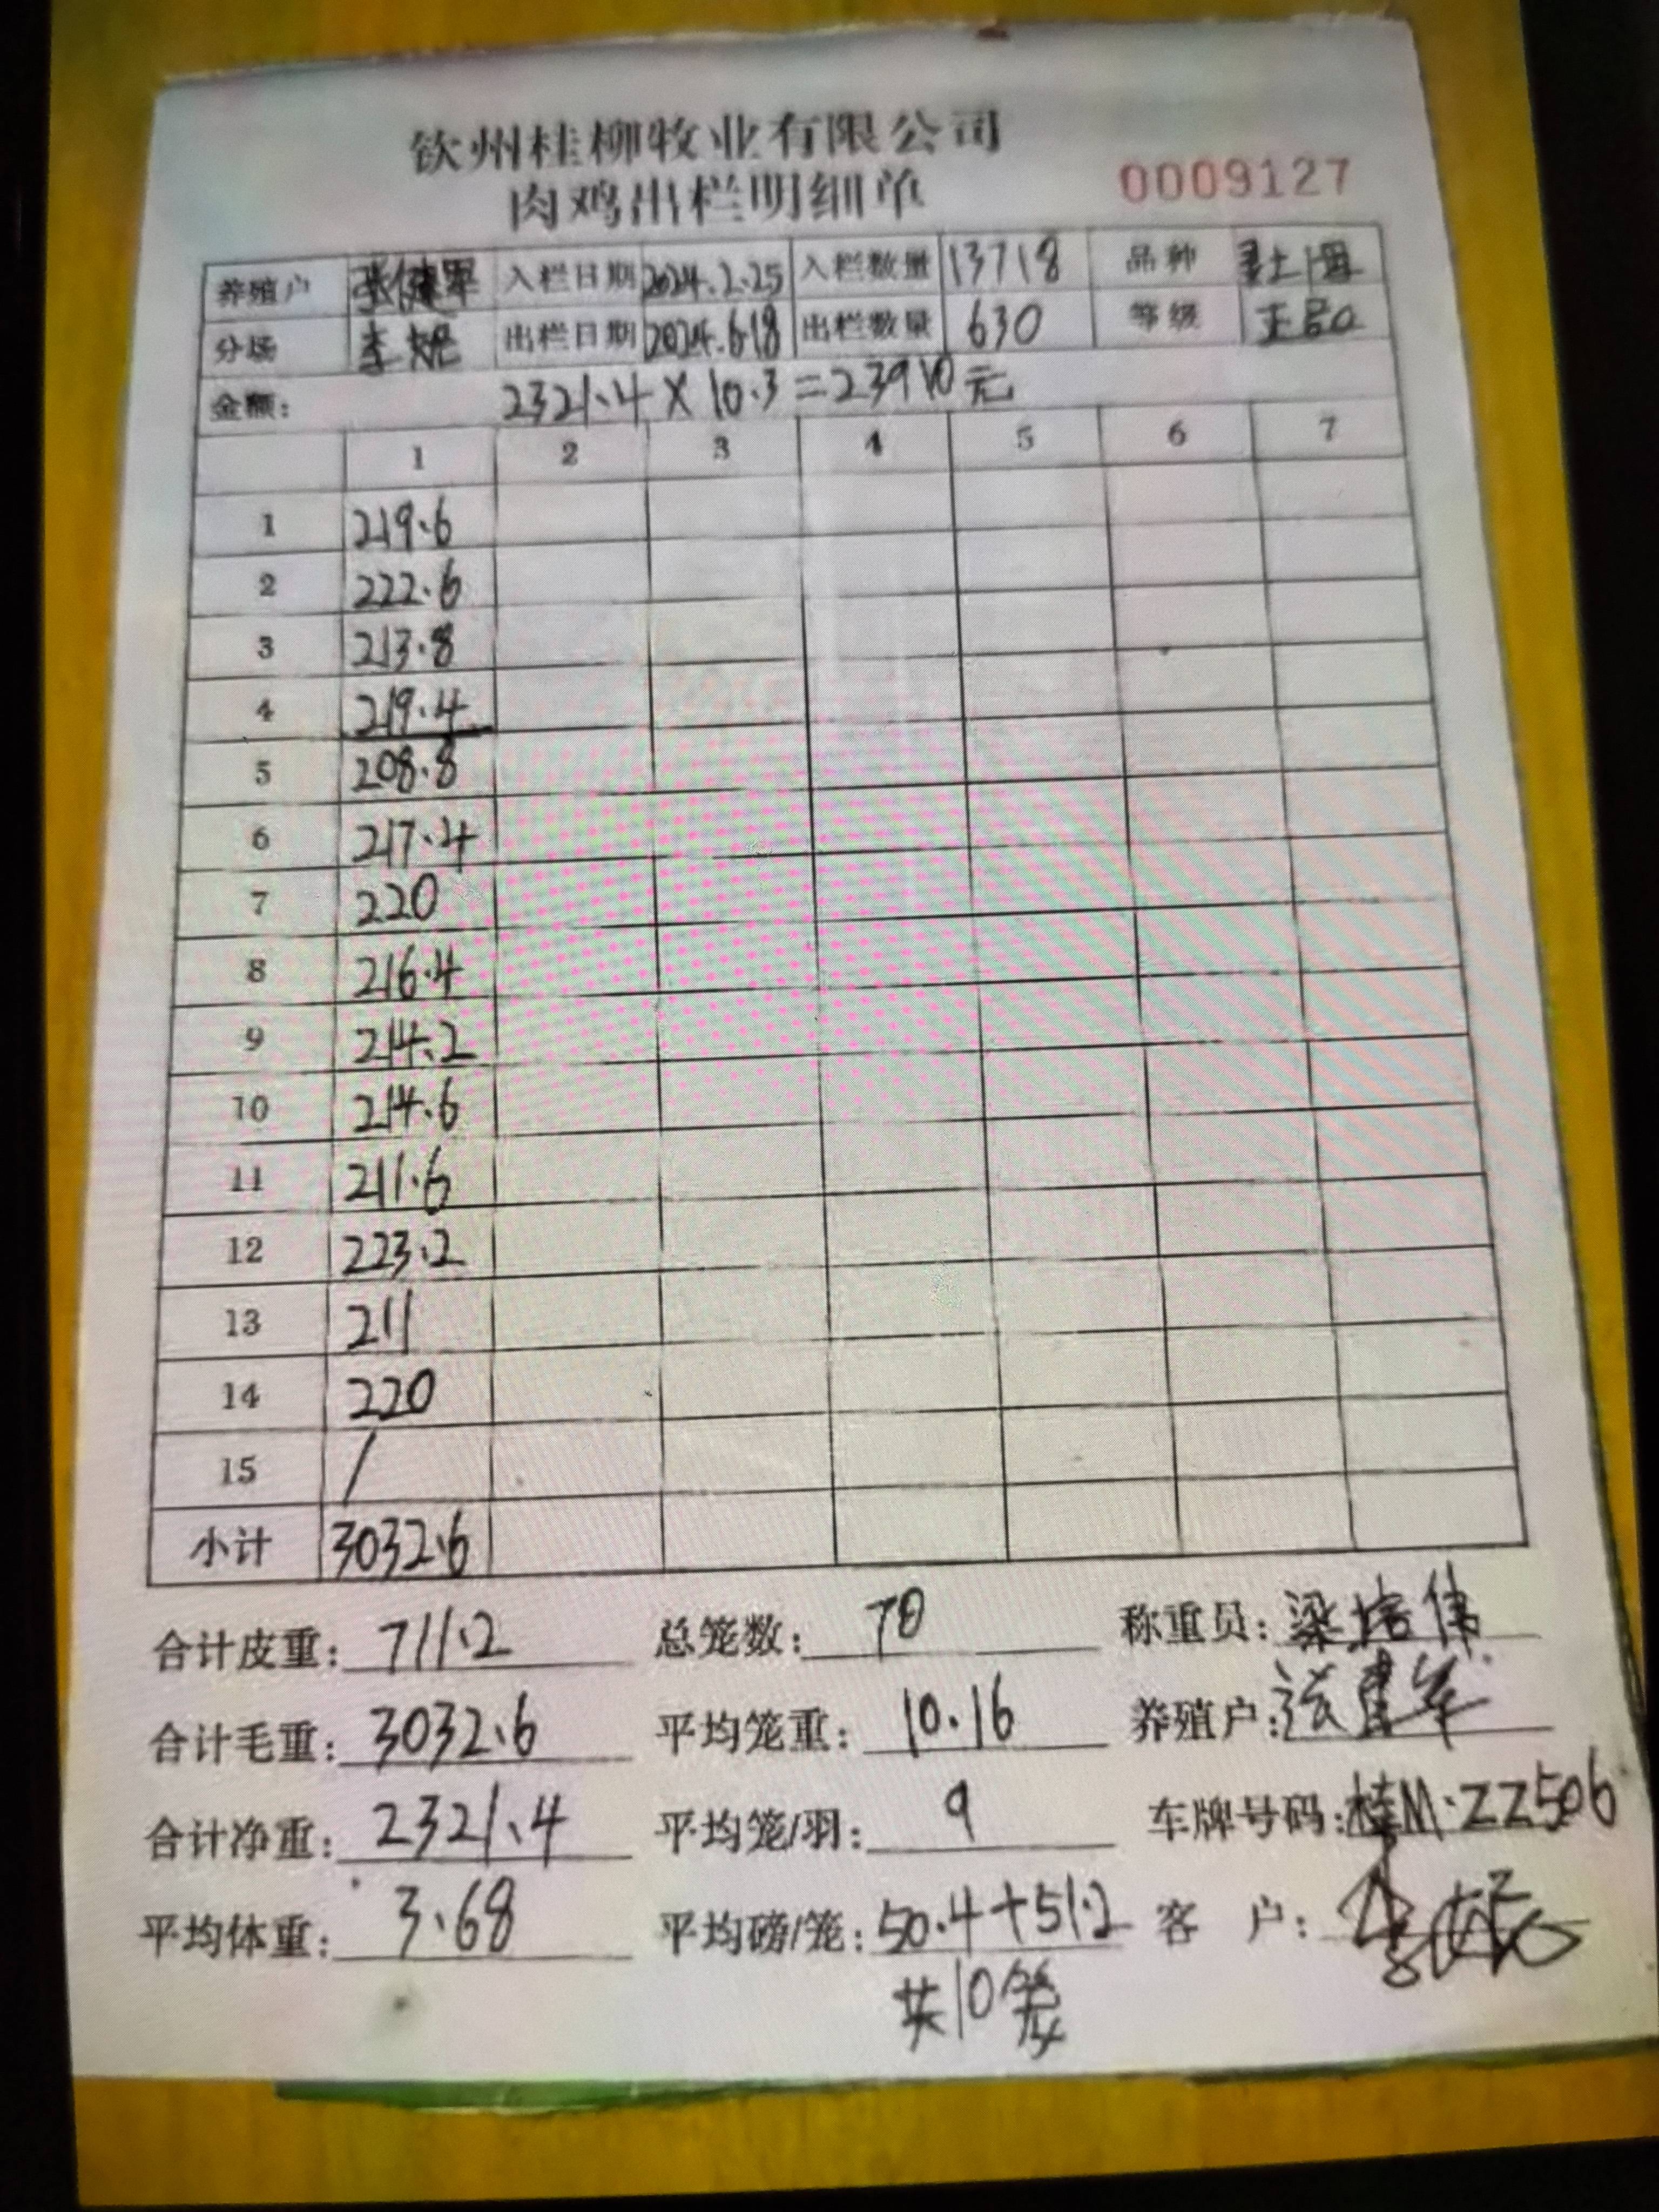 钦州桂柳牧业有限公司
肉鸡出栏明细单 0009127
养殖户 张健军 入栏日期 2024.2.25 入栏数量 13718 品种
分场 出栏日期 2024.6.18 出栏数量 630 等级 正品
金额: 2321.4×10.3=23910元
1 2 3 4 5 6 7
1 219.6
2 222.6
3 213.8
4 219.4
5 208.8
6 217.4
7 220
8 216.4
9 214.2
10 214.6
11 211.6
12 223.2
13 211
14 220
15 /
小计 3032.6
合计皮重: 711.2 总笼数: 70 称重员: 梁培伟
合计毛重: 3032.6 平均笼重: 10.16 养殖户:
合计净重: 2321.4 平均笼/羽: 9 车牌号码: 桂M·ZZ506
平均体重: 3.68 平均磅/笼: 50.4+51.2 客 户:
共10笼